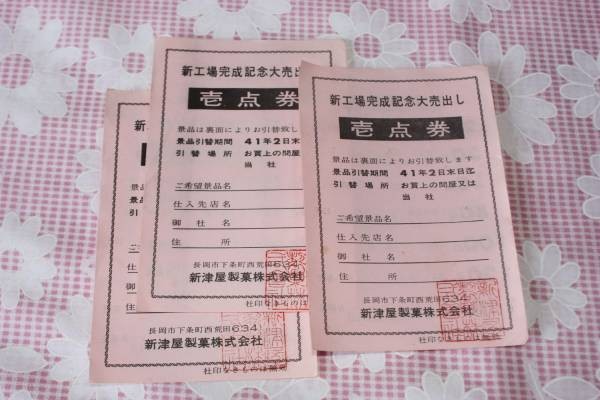 新工場完成記念大売出し
壱点券
景品は裏面によりお引替致します
景品引替期間 41年2日末日迄
引替場所 お買上の問屋又は
当社
ご希望景品名
仕入先店名
御社名
住所
長岡市下条町西荒田634
新津屋製菓株式会社
社印なきものは無効
新工場完成記念大売出
壱点券
景品は裏面によりお引替致し
景品引替期間 41年2日末
引替場所 お買上の問屋
当社
ご希望景品名
仕入先店名
御社名
住所
長岡市下条町西荒田634
新津屋製菓株式会社
社印なきものは
新
景
景品
引
ご
仕
御
住
長岡市下条町西荒田634
新津屋製菓株式会社
社印なきものは無効